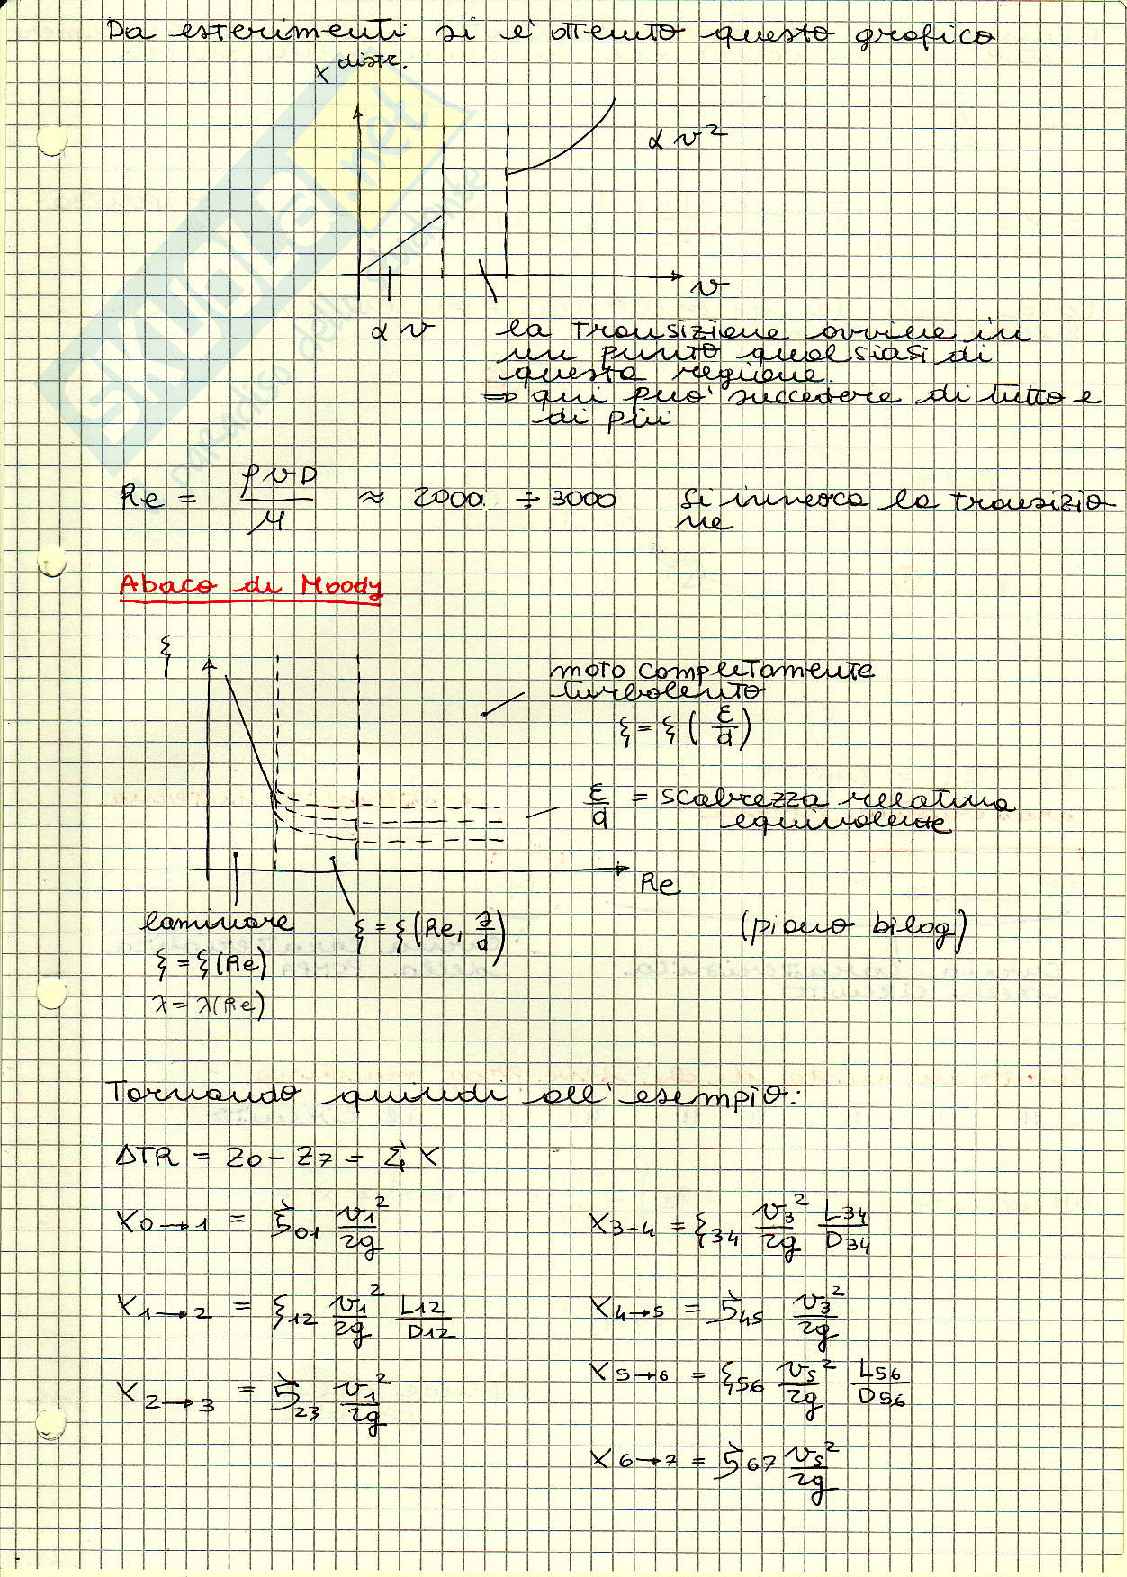 Da esterimenti si è ottenuto questo grafico
Y distr.
∝ v²
v
∝ v
la transizione avviene in
un punto qualsiasi di
questa regione.
⇒ qui può succedere di tutto e
di più
Re = ρvD/μ ≈ 2000 ÷ 3000 si innesca la transizio
ne
Abaco di Moody
ξ
moto completamente
turbolento
ξ = ξ(ε/d)
ε/d = scabrezza relativa
equivalente
Re
laminare
ξ = ξ(Re)
λ = λ(Re)
ξ = ξ(Re, λ/d)
(piano bilog)
Tornando quindi all'esempio:
ΔTR = Z0 - Z7 = Σ Y
Y0→1 = ζ01 v1²/2g
Y1→2 = ξ12 v1²/2g L12/D12
Y2→3 = ζ23 v1²/2g
Y3-4 = ξ34 v3²/2g L34/D34
Y4→5 = ζ45 v3²/2g
Y5→6 = ξ56 v5²/2g L56/D56
Y6→7 = ζ67 v5²/2g
skuola.net